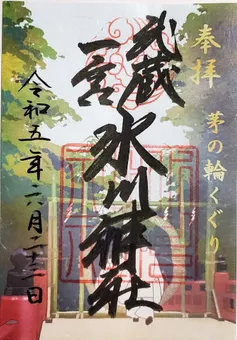 奉拝
茅の輪くぐり
武蔵
一言
氷川神社
令和五年六月二十一日